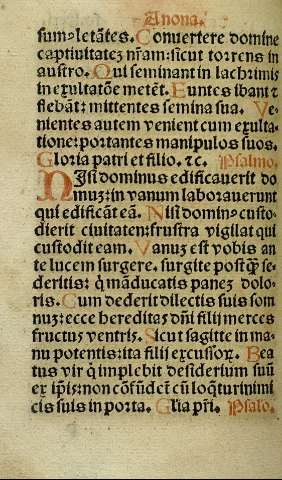 Anona.
sumꝰ letãtes. Conuertere domine
captiuitatez nr̃am: sicut torrens in
austro. Qui seminant in lachrimis
in exultatõe metẽt. Euntes ibant ⁊
flebãt: mittentes semina sua. Ve-
nientes autem venient cum exulta-
tione: portantes manipulos suos.
Gloria patri et filio. ⁊c. Psalmo.
NIsi dominus edificauerit do
muz: in vanum laborauerunt
qui edificãt eã. Nisi dominꝰ custo-
dierit ciuitatem: frustra vigilat qui
custodit eam. Vanuz est vobis an
te lucem surgere. surgite postq̃ se-
deritis: q̇ mãducatis panez dolo-
ris. Cum dederit dilectis suis som
nuz: ecce hereditas dñi filij merces
fructus ventris. Sicut sagitte in ma-
nu potentis: ita filij excussoꝝ. Bea
tus vir q̇ implebit desiderium suũ
ex ip̃is: non cõfũdet̃ cũ loq̃tur inimi
cis suis in porta. Gl̃ia pr̃i. Psalo.